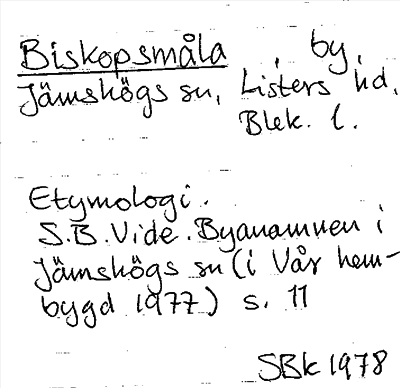 Biskopsmåla , by,
Jämshögs sn, Listers hd.
Blek. l.
Etymologi.
S.B. Vide. Byanamnen i
Jämshögs sn (i Vår hem-
bygd 1977) s. 11
SBk 1978